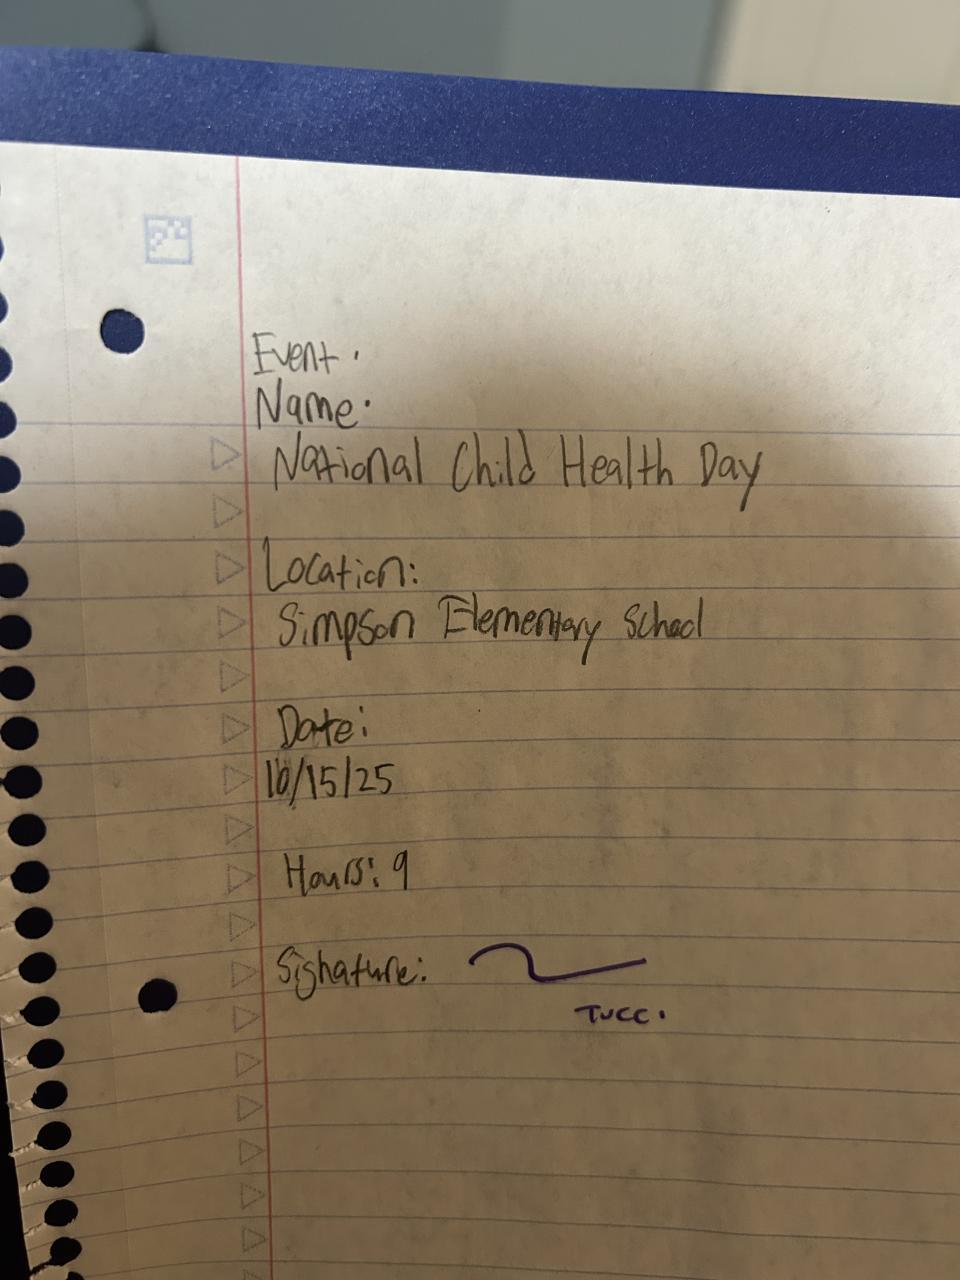 Event.
Name.
National Child Health Day
Location:
Simpson Elementary School
Date:
10/15/25
Hours: 9
Signature:
Tucc.